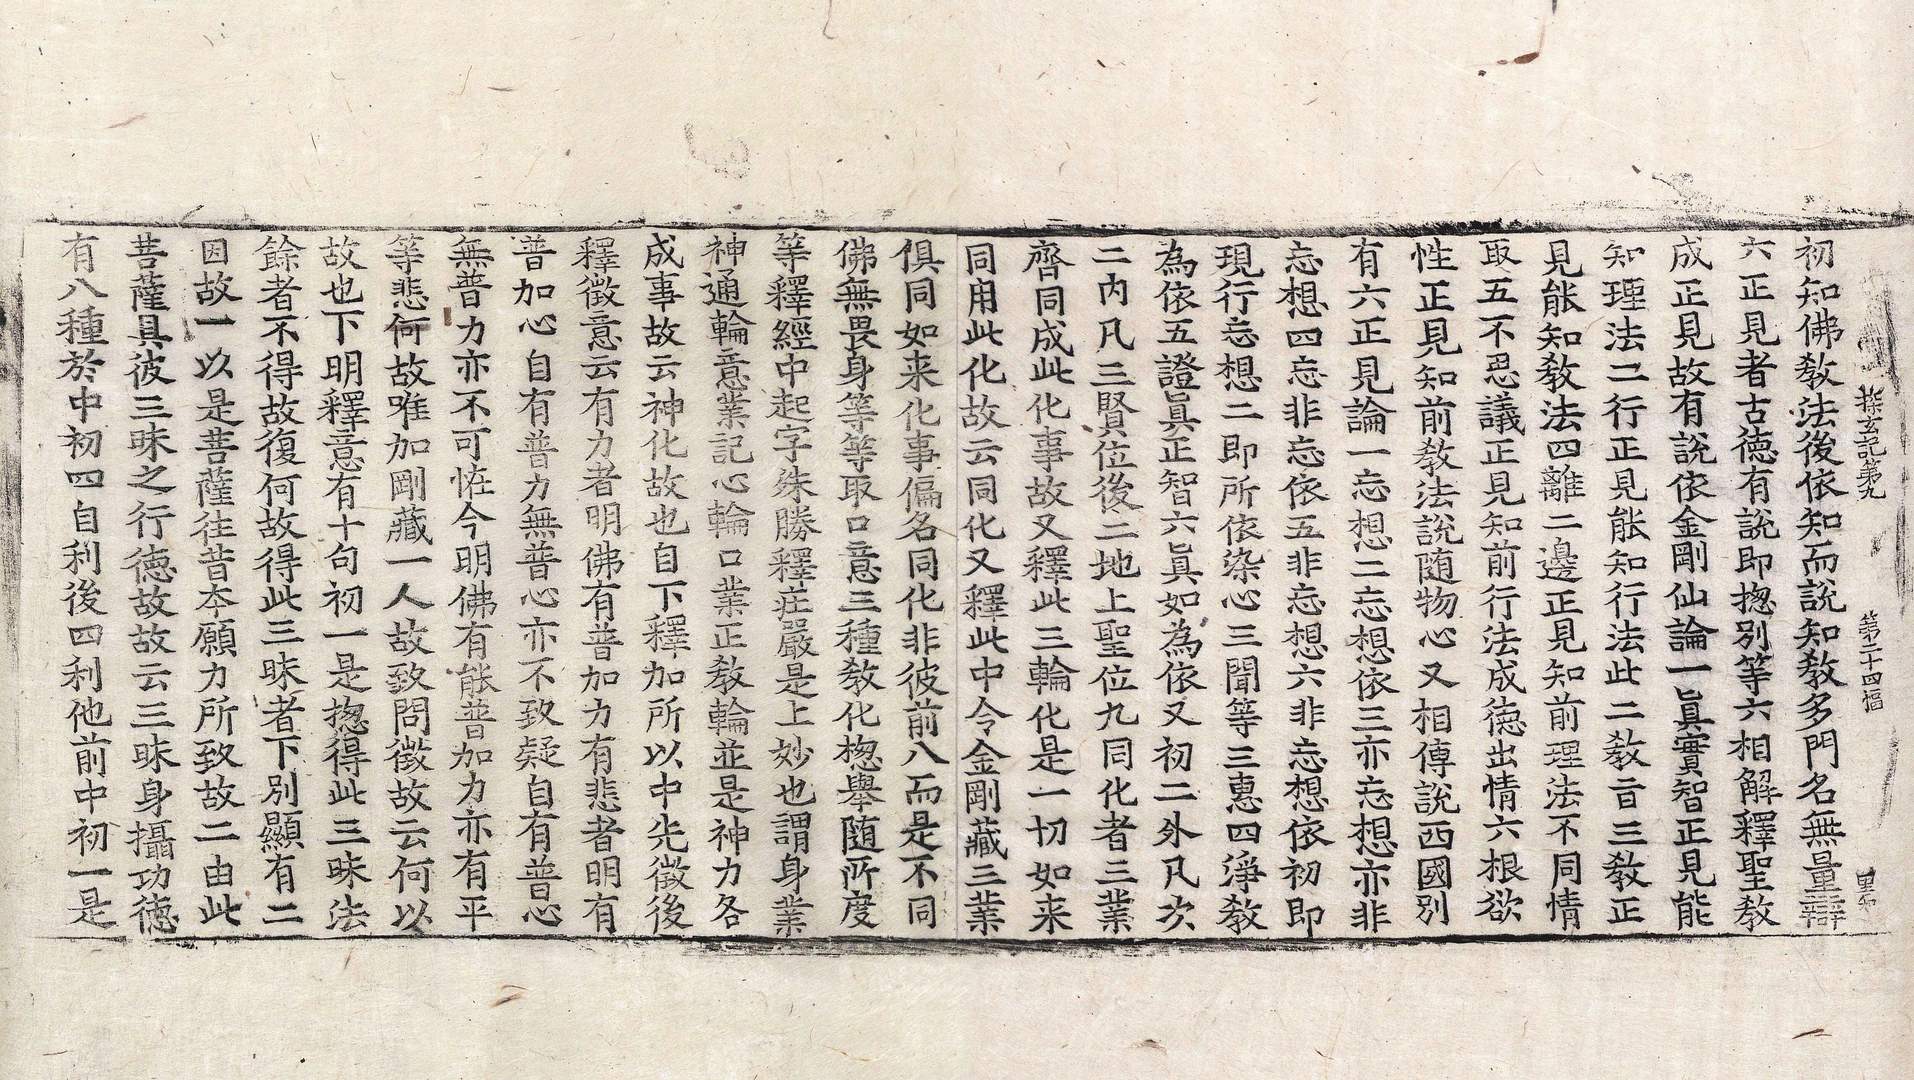 初知佛教法後依知而說知教多門名無量辯
六正見者古德有說即揔別等六相解釋聖教
成正見故有說依金剛仙論一眞實智正見能
知理法二行正見能知行法此二教盲三教正
見能知教法四離二邊正見知前理法不同情
取五不思議正見知前行法成德出情六根欲
性正見知前教法說随物心又相傳說西國別
有六正見論一忘想二忘想依三亦忘想亦非
忘想四忘非忘依五非忘想六非忘想依初即
現行忘想二即所依染心三聞等三惠四淨教
為依五證眞正智六眞如為依又初二外凡次
二內凡三賢位後二地上聖位九同化者三業
齊同成此化事故又釋此三輪化是一切如来
同用此化故云同化又釋此中令金剛藏三業
俱同如来化事偏名同化非彼前八而是不同
佛無畏身等等取口意三種教化揔舉随所度
等釋經中起字殊勝釋莊嚴是上妙也謂身業
神通輪意業記心輪口業正教輪並是神力各
成事故云神化故也自下釋加所以中先徵後
釋徵意云有力者明佛有普加力有悲者明有
普加心自有普力無普心亦不致疑自有普心
無普力亦不可怪今明佛有能普加力亦有平
等悲何故唯加剛藏一人故致問徵故云何以
故也下明釋意有十句初一是揔得此三昧法
餘者不得故復何故得此三昧者下別顯有二
因故一以是菩薩往昔本願力所致故二由此
菩薩具彼三昧之行德故故云三昧身攝功德
有八種於中初四自利後四利他前中初一是
探玄記第九 第二十四幅 里知